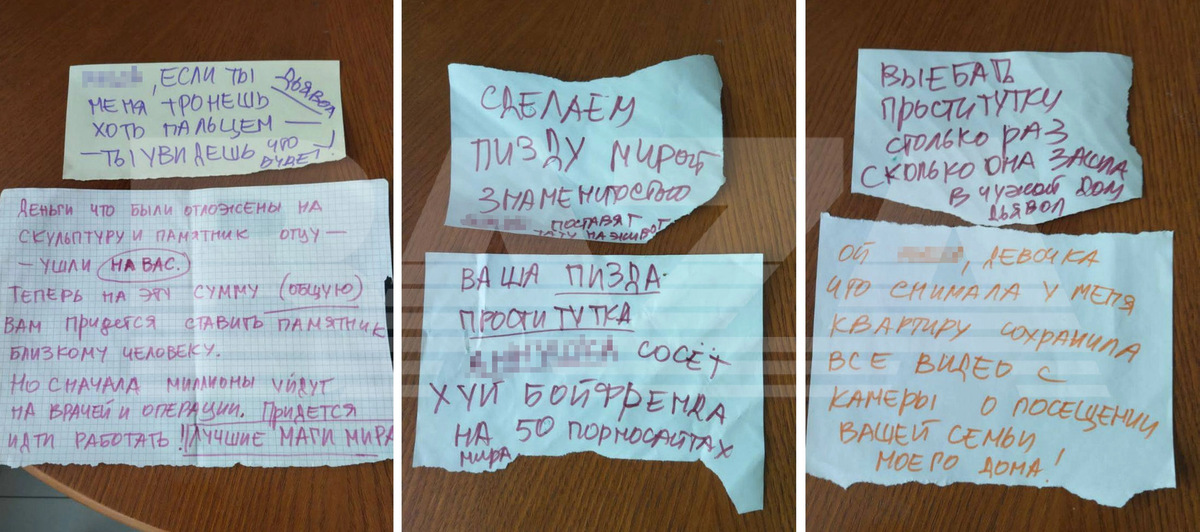 , ЕСЛИ ТЫ
МЕНЯ ТРОНЕШЬ
ДЬЯВОЛ
ХОТЬ ПАЛЬЦЕМ —
— ТЫ УВИДЕШЬ ЧТО
БУДЕТ !
ДЕНЬГИ ЧТО БЫЛИ ОТЛОЖЕНЫ НА
СКУЛЬПТУРУ И ПАМЯТНИК ОТЦУ —
— УШЛИ НА ВАС.
ТЕПЕРЬ НА ЭТУ СУММУ (ОБЩУЮ)
ВАМ ПРИДЕТСЯ СТАВИТЬ ПАМЯТНИК
БЛИЗКОМУ ЧЕЛОВЕКУ.
НО СНАЧАЛА МИЛЛИОНЫ УЙДУТ
НА ВРАЧЕЙ И ОПЕРАЦИИ. ПРИДЕТСЯ
ИДТИ РАБОТАТЬ ! ЛУЧШИЕ МАГИ МИРА
СДЕЛАЕМ
ПИЗДУ МИРОЙ
ЗНАМЕНИТОСТЬЮ
ПОСТАВЯТ
ТАТУ НА ЖИВОТ
ВАША ПИЗДА
ПРОСТИТУТКА
СОСЁТ
ХУЙ БОЙФРЕНДА
НА 50 ПОРНОСАЙТАХ
МИРА
ВЫЕБАТЬ
ПРОСТИТУТКУ
СТОЛЬКО РАЗ
СКОЛЬКО ОНА ЗАСПА
В ЧУЖОЙ ДОМ
ДЬЯВОЛ
ОЙ , ДЕВОЧКА
ЧТО СНИМАЛА У МЕНЯ
КВАРТИРУ СОХРАНИЛА
ВСЕ ВИДЕО С
КАМЕРЫ О ПОСЕЩЕНИИ
ВАШЕЙ СЕМЬИ
МОЕГО ДОМА !